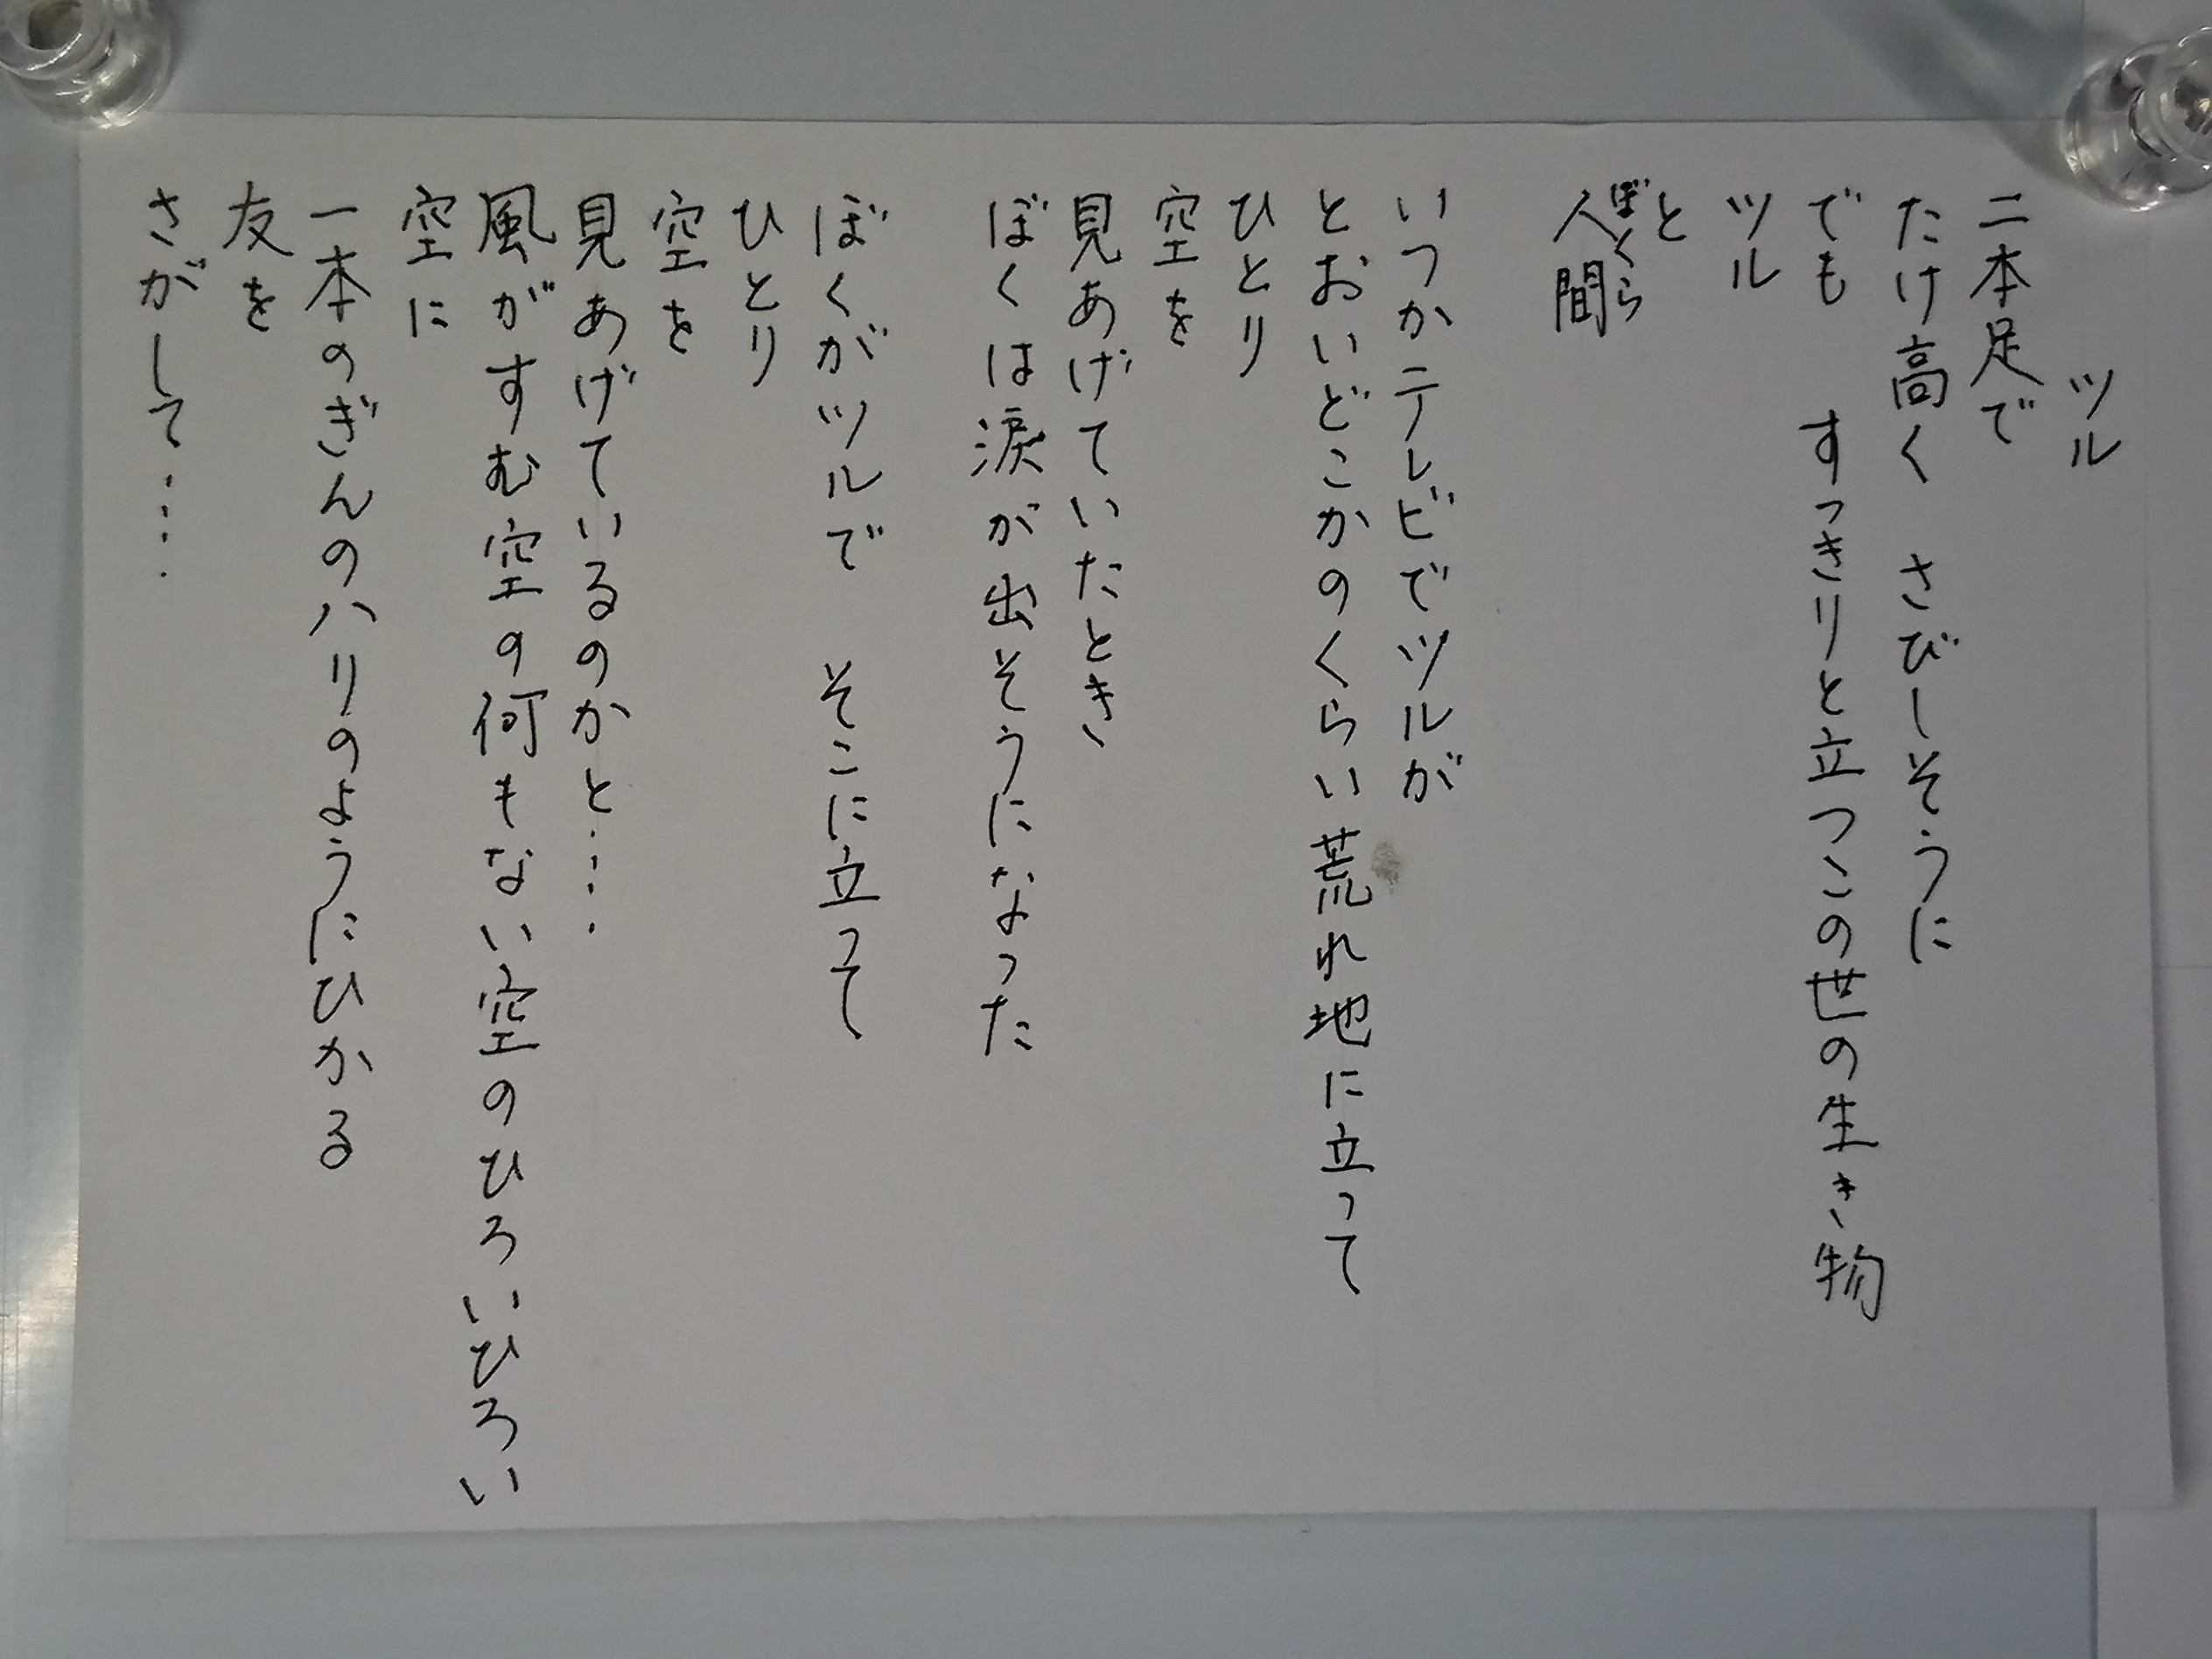 ツル
二本足で
たけ高く　さびしそうに
でも　すっきりと立つこの世の生き物
ツル
と
ぼくら
人間
いつかテレビでツルが
とおいどこかのくらい荒れ地に立って
ひとり
空を
見あげていたとき
ぼくは涙が出そうになった
ぼくがツルで　そこに立って
ひとり
空を
見あげているのかと……
風がすむ空の何もない空のひろいひろい
空に
一本のぎんのハリのようにひかる
友を
さがして……